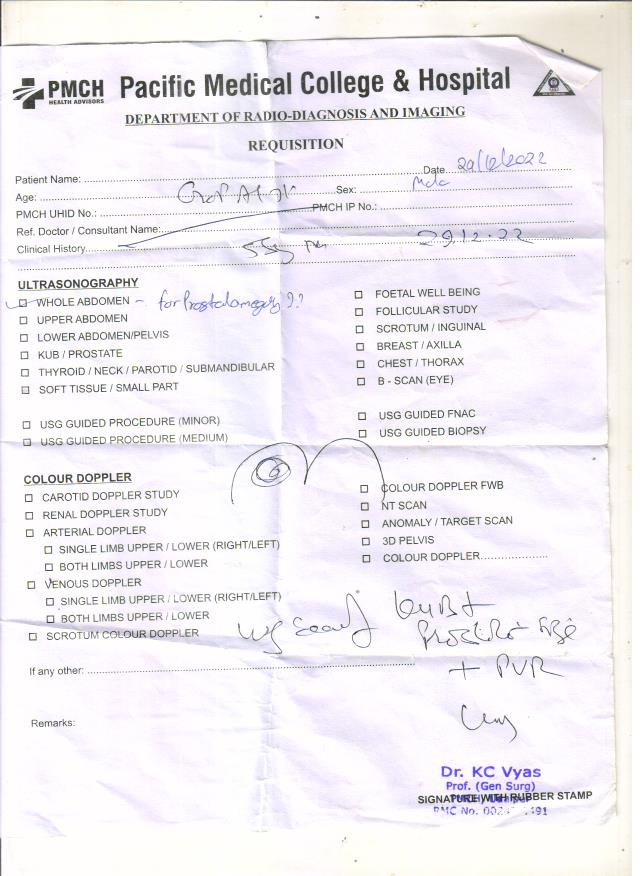 PMCH
HEALTH ADVISORS
Pacific Medical College & Hospital
DEPARTMENT OF RADIO-DIAGNOSIS AND IMAGING
REQUISITION
Patient Name: Date
Age: Sex: Male
PMCH UHID No.: PMCH IP No.:
Ref. Doctor / Consultant Name:
Clinical History 29.12.22
ULTRASONOGRAPHY
WHOLE ABDOMEN - for Prostatomegaly ??
UPPER ABDOMEN
LOWER ABDOMEN/PELVIS
KUB / PROSTATE
THYROID / NECK / PAROTID / SUBMANDIBULAR
SOFT TISSUE / SMALL PART
USG GUIDED PROCEDURE (MINOR)
USG GUIDED PROCEDURE (MEDIUM)
FOETAL WELL BEING
FOLLICULAR STUDY
SCROTUM / INGUINAL
BREAST / AXILLA
CHEST / THORAX
B - SCAN (EYE)
USG GUIDED FNAC
USG GUIDED BIOPSY
COLOUR DOPPLER
CAROTID DOPPLER STUDY
RENAL DOPPLER STUDY
ARTERIAL DOPPLER
SINGLE LIMB UPPER / LOWER (RIGHT/LEFT)
BOTH LIMBS UPPER / LOWER
VENOUS DOPPLER
SINGLE LIMB UPPER / LOWER (RIGHT/LEFT)
BOTH LIMBS UPPER / LOWER
SCROTUM COLOUR DOPPLER
COLOUR DOPPLER FWB
NT SCAN
ANOMALY / TARGET SCAN
3D PELVIS
COLOUR DOPPLER
+ PVR
If any other:
Remarks:
Dr. KC Vyas
Prof. (Gen Surg)
SIGNATURE WITH RUBBER STAMP
RMC No.